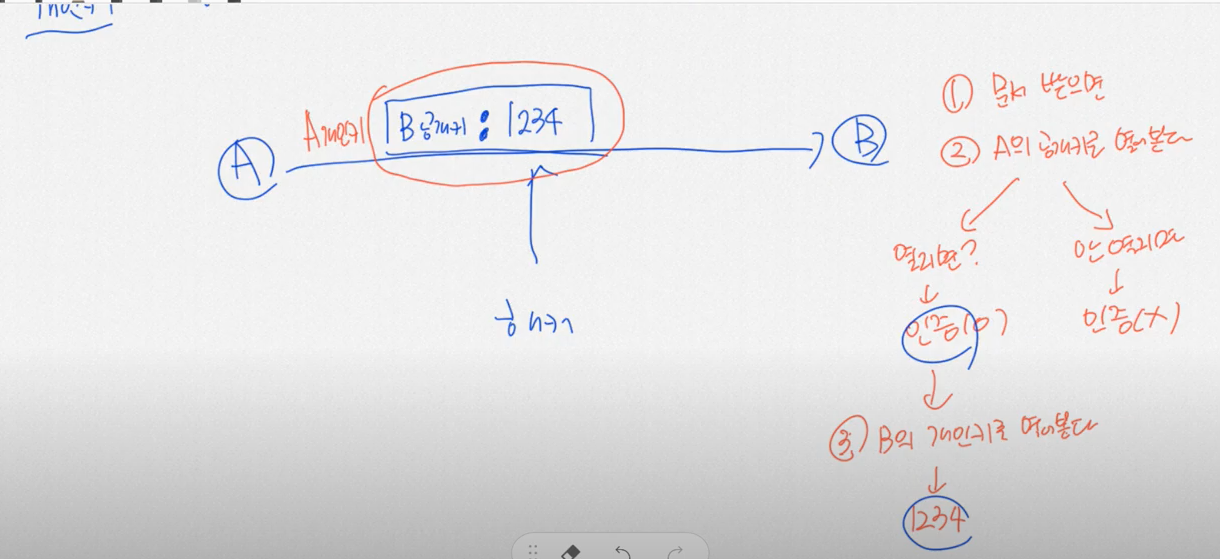 개인키
A개인키
B공개키 : 1234
A
B
공개키
① 문서 받으면
② A의 공개키로 열어본다
열리면?
안열리면
인증(O)
인증(X)
③ B의 개인키로 열어본다
1234